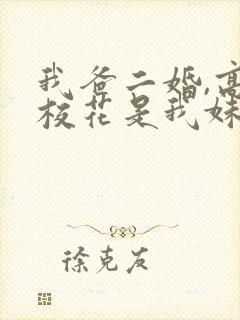 我爸二婚,高
校花是我妹
徐克友